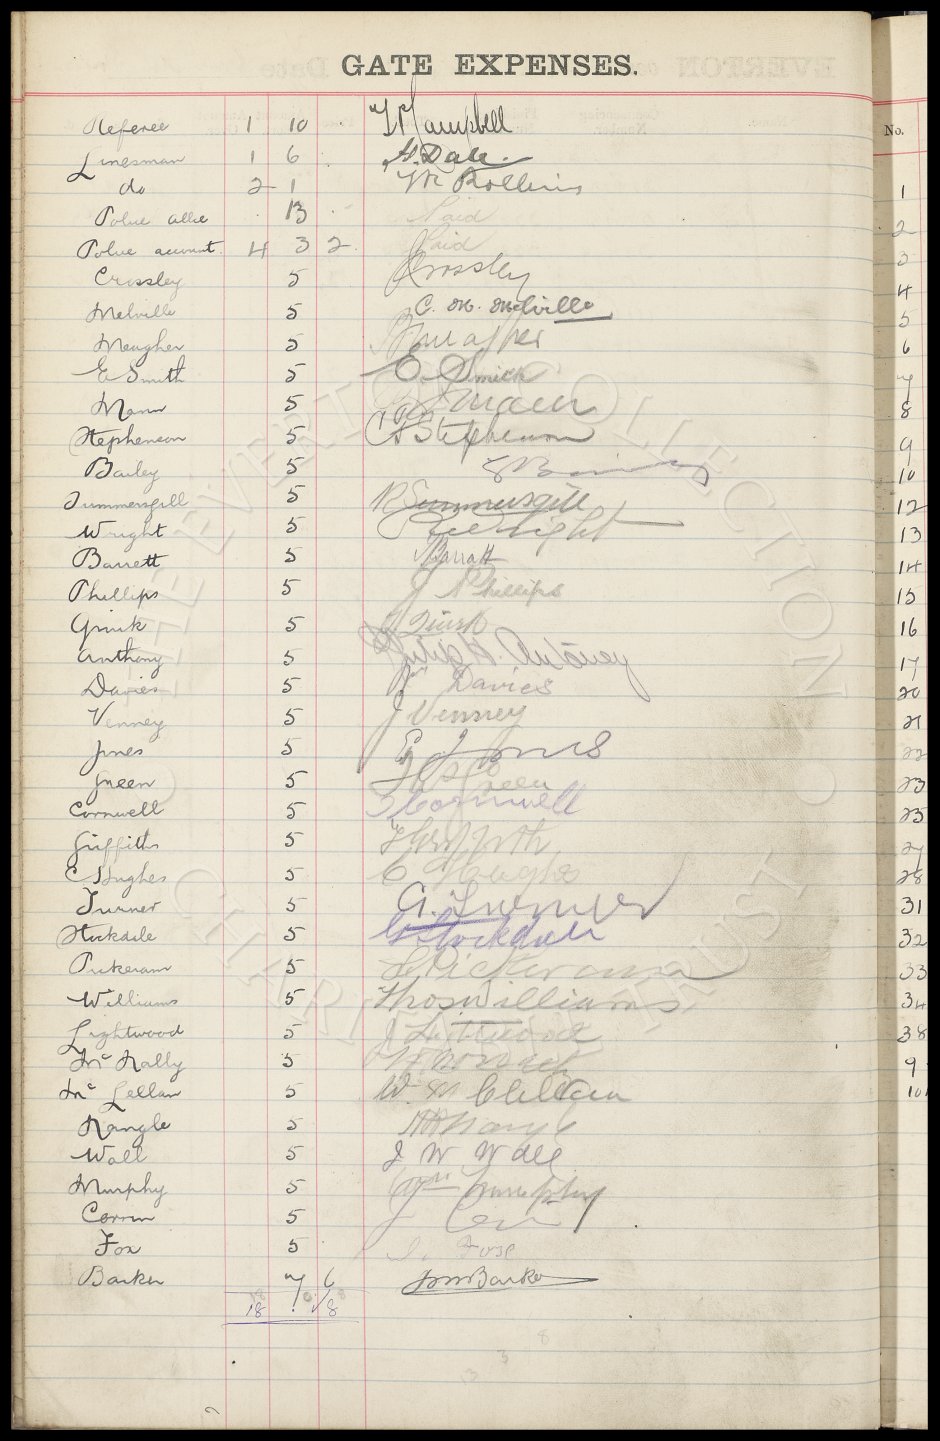 GATE EXPENSES.
No.
Referee 1 10 . T P Campbell
Linesman 1 6 . H. Dale.
do 2 1 Rollins
Police allce . 13 . Paid
Police account. 4 3 2 Paid
Crossley 5 Crossley
Melville 5 C. M. Melville
Meagher 5 Meagher
E Smith 5 E. Smith
Mann 5 Mann
Stephenson 5 Stephenson
Bailey 5
Summersgill 5 R Summersgill
Wright 5 Wright
Barrett 5 Barratt
Phillips 5 J Phillips
Quirk 5 J Quirk
Anthony 5 Philip H. Antoney
Davies 5 Davies
Venney 5 J Venney
Jones 5 E J Jones
Green 5 Green
Cornwell 5 Cornwell
Griffiths 5
C Hughes 5 C Hughes
Turner 5 A. Turner
Stockdale 5 Stockdale
Pickeram 5 Pickeram
Williams 5 Thos Williams
Lightwood 5 J Lightwood
Mc Nally 5
Mc Lellan 5 W. M Clellan
Nangle 5 Nangle
Wall 5 J W Wall
Murphy 5 Wm Murphy
Corrin 5 J
Fox 5
Barker 7 6 Barker
18 . 8
1
2
3
4
5
6
7
8
9
10
12
13
14
15
16
17
20
21
22
23
25
27
28
31
32
33
34
38
9
10
THE EVERTON COLLECTION CHARITABLE TRUST